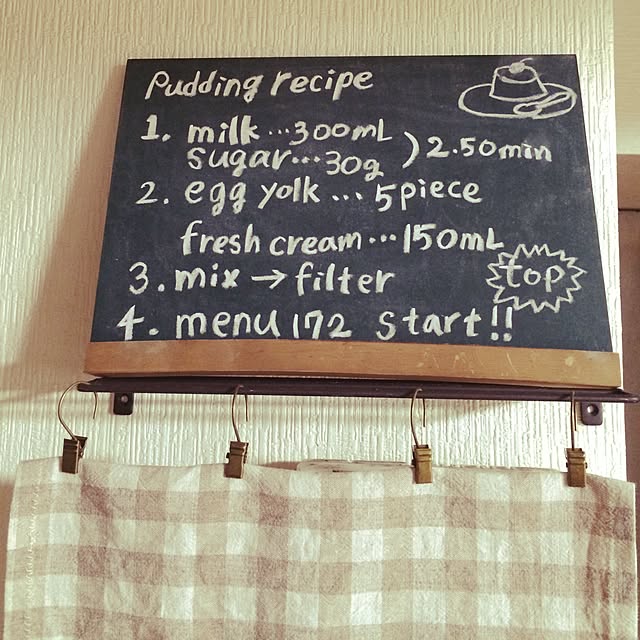 Pudding recipe
1. milk ... 300mL
sugar ... 30g ) 2.50min
2. egg yolk ... 5piece
fresh cream ... 150mL
3. mix → filter
top
4. menu 172 start!!